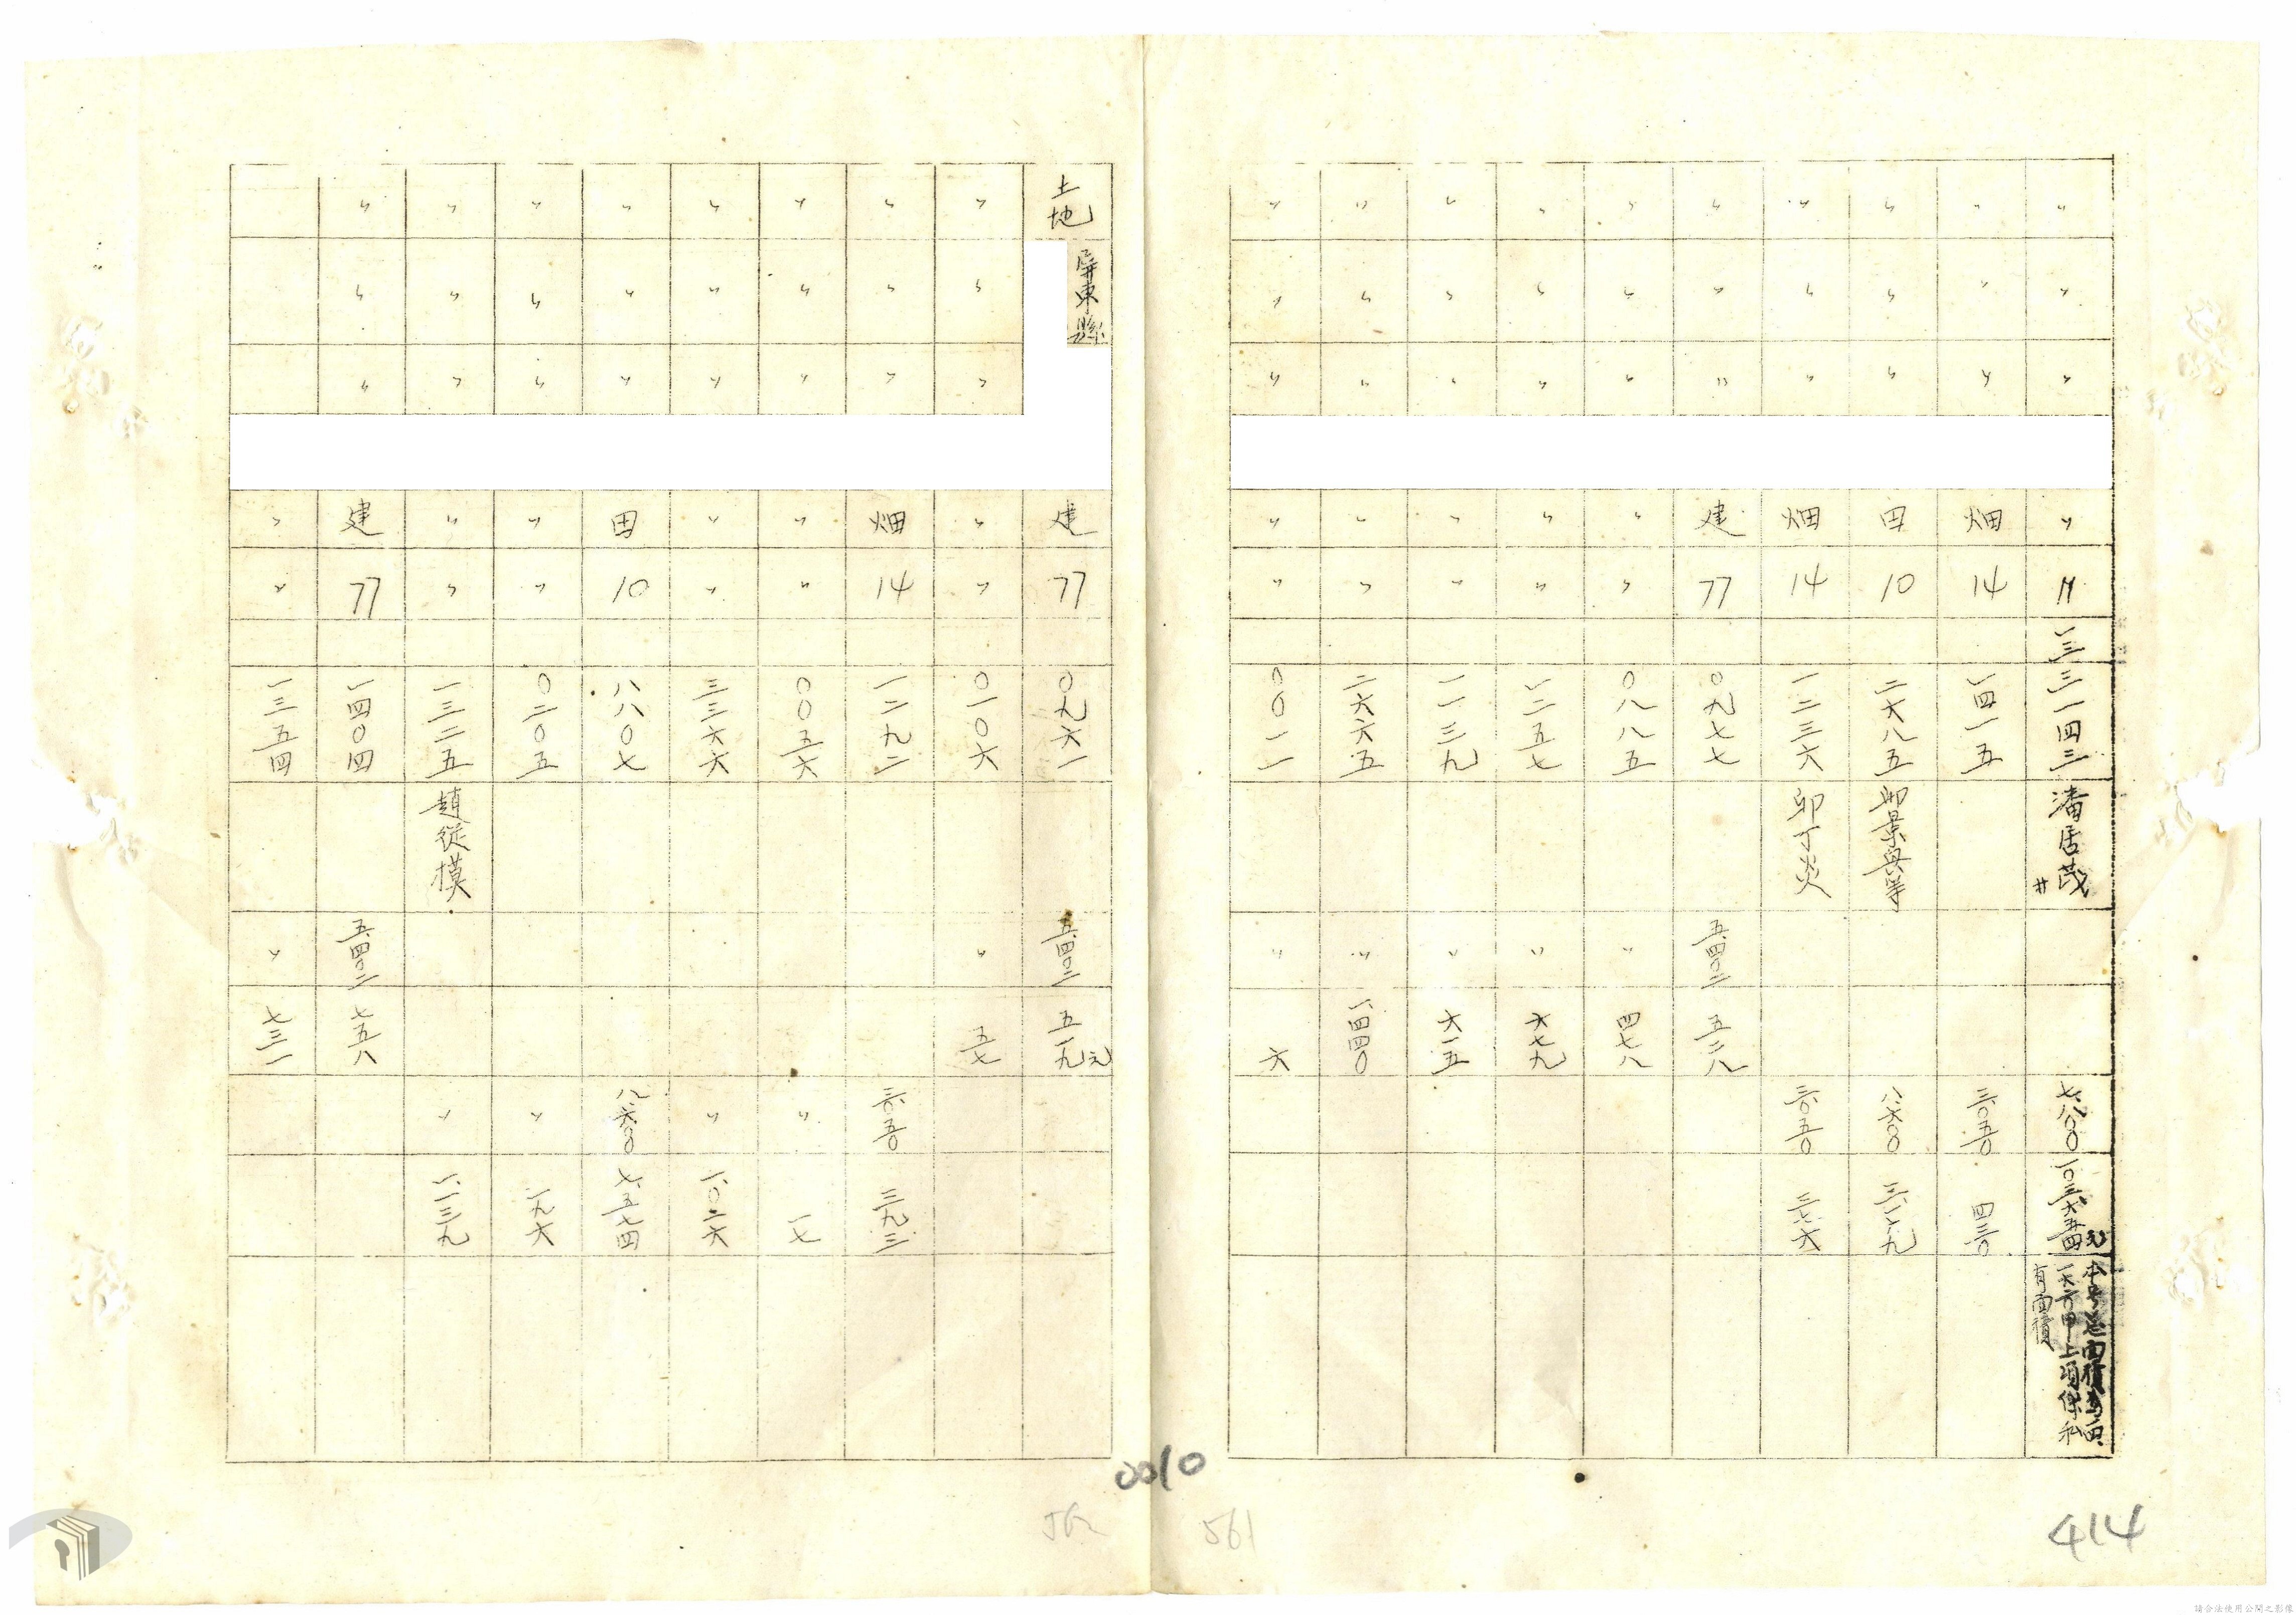 〃 〃 〃 〃 〃 一三三一四三 潘居茂 七八〇〇 一〇三、六五四元 本号总面積為四、一六六甲上項係私有面積
〃 〃 〃 畑 14 一四一五 三〇五〇 四三〇
〃 〃 〃 田 10 二六八五 八六〇〇
〃 〃 〃 畑 14 一二三六 卯丁炎 三〇五〇
〃 〃 〃 建 77 〇九七七 五、四〇二 五二八
〃 〃 〃 〃 〃 〇八八五 〃 四七八
〃 〃 〃 〃 〃 一二五七 〃 六七九
〃 〃 〃 〃 〃 一一三九 〃 六一五
〃 〃 〃 〃 〃 二六六五 〃 一、四四〇
〃 〃 〃 〃 〃 〇〇一一 〃 六
土地 屏東縣 建 77 〇九六一 五、四〇二 五一九元
〃 〃 〃 〃 〃 〇一〇六 〃 五七
〃 〃 〃 畑 14 一二九二 三〇五〇 三九三
〃 〃 〃 〃 〃 〇〇五六 〃 一七
〃 〃 〃 〃 〃 三三六六 〃 一、〇二六
〃 〃 〃 田 10 八八〇七 八六〇〇 七、五七四
〃 〃 〃 〃 〃 〇二〇五 〃 一九六
〃 〃 〃 〃 〃 一三二五 趙從模 〃 一、一三九
〃 〃 〃 建 77 一四〇四 五、四〇二 七五八
〃 〃 一三五四 〃 七三一
0010
561
414
請合法使用公開之影像